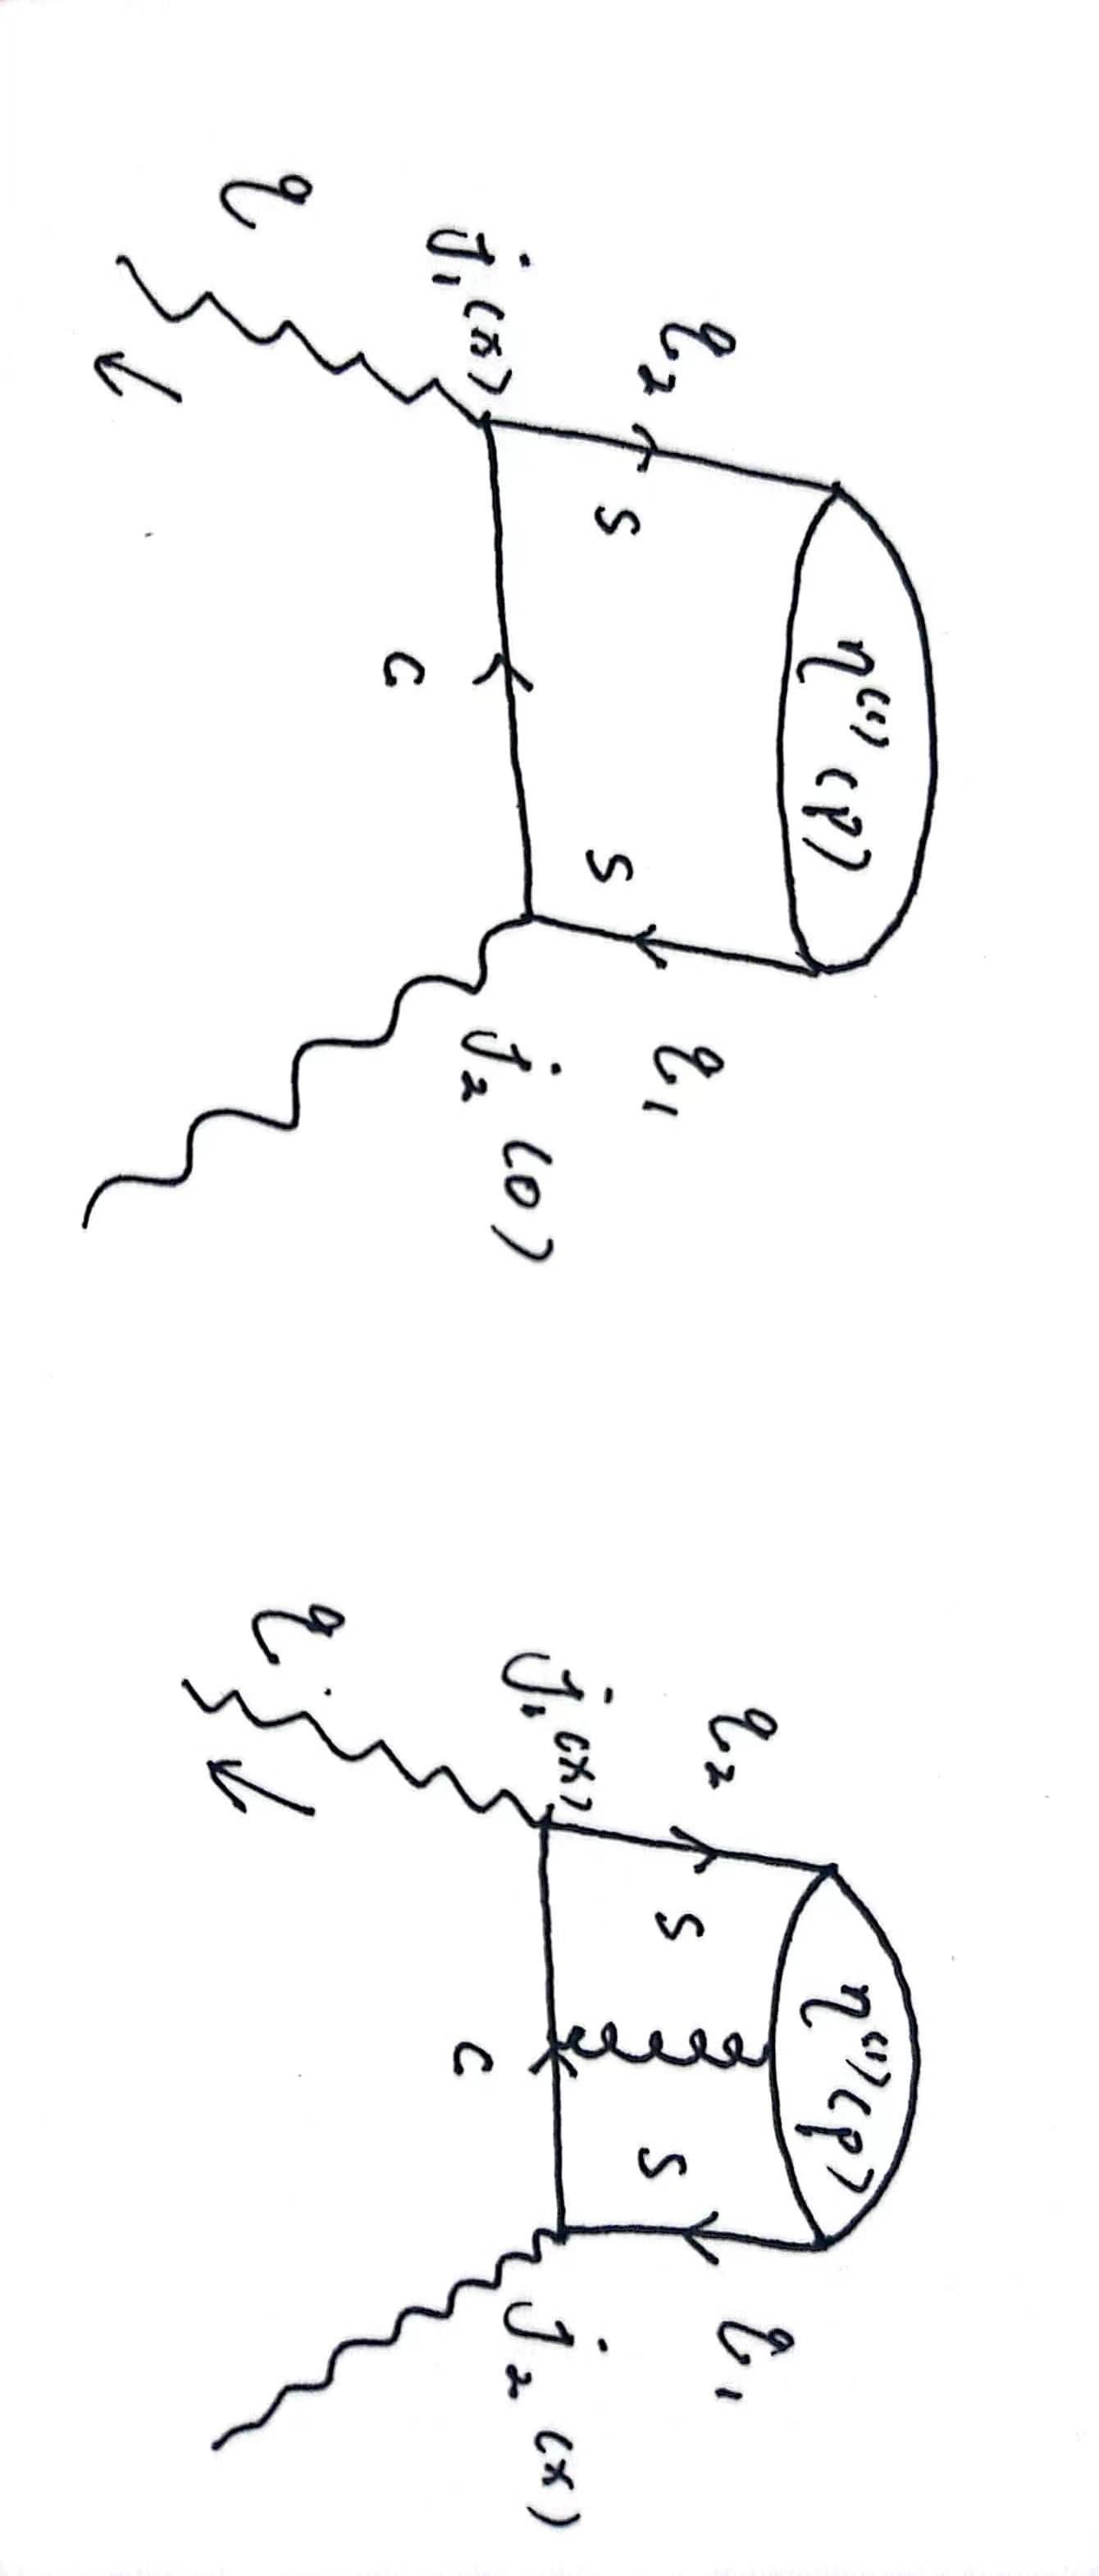 η⁽'⁾(p)
q₂ s s q₁
j₁(x) c j₂(0)
q
η⁽'⁾(p)
q₂ s s q₁
j₁(x) c j₂(x)
q